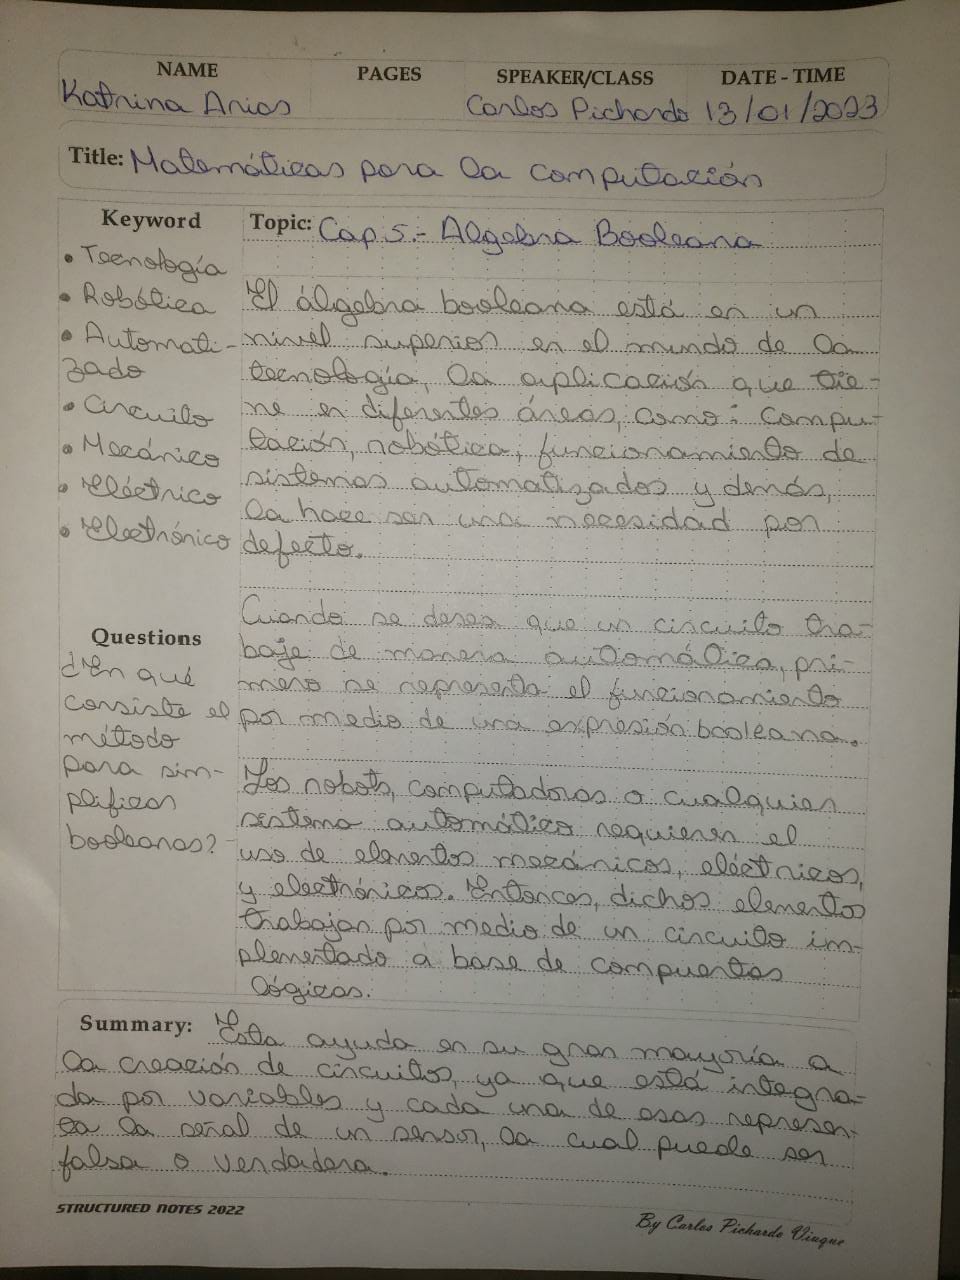 NAME PAGES SPEAKER/CLASS DATE - TIME
Katrina Arias Carlos Pichardo 13/01/2023
Title: Matemáticas para la computación
Keyword
• Tecnología
• Robótica
• Automati-
zado
• Circuito
• Mecánico
• Eléctrico
• Electrónico
Questions
¿En qué
consiste el
método
para sim-
plificar
booleanas?
Topic: Cap 5.- Algebra Booleana
El álgebra booleana está en un
nivel superior en el mundo de la
tecnología, la aplicación que tie-
ne en diferentes áreas, como: compu-
tación, robótica, funcionamiento de
sistemas automatizados y demás,
la hace ser una necesidad por
defecto.
Cuando se desea que un circuito tra-
baje de manera automática, pri-
mero se representa el funcionamiento
por medio de una expresión booleana.
Los robots, computadoras o cualquier
sistema automático requieren el
uso de elementos mecánicos, eléctricos,
y electrónicos. Entonces, dichos elementos
trabajan por medio de un circuito im-
plementado a base de compuertas
lógicas.
Summary: Esta ayuda en su gran mayoría a
la creación de circuitos, ya que está integra-
da por variables y cada una de esas represen-
ta la señal de un sensor, la cual puede ser
falsa o verdadera.
STRUCTURED NOTES 2022
By Carlos Pichardo Viuque